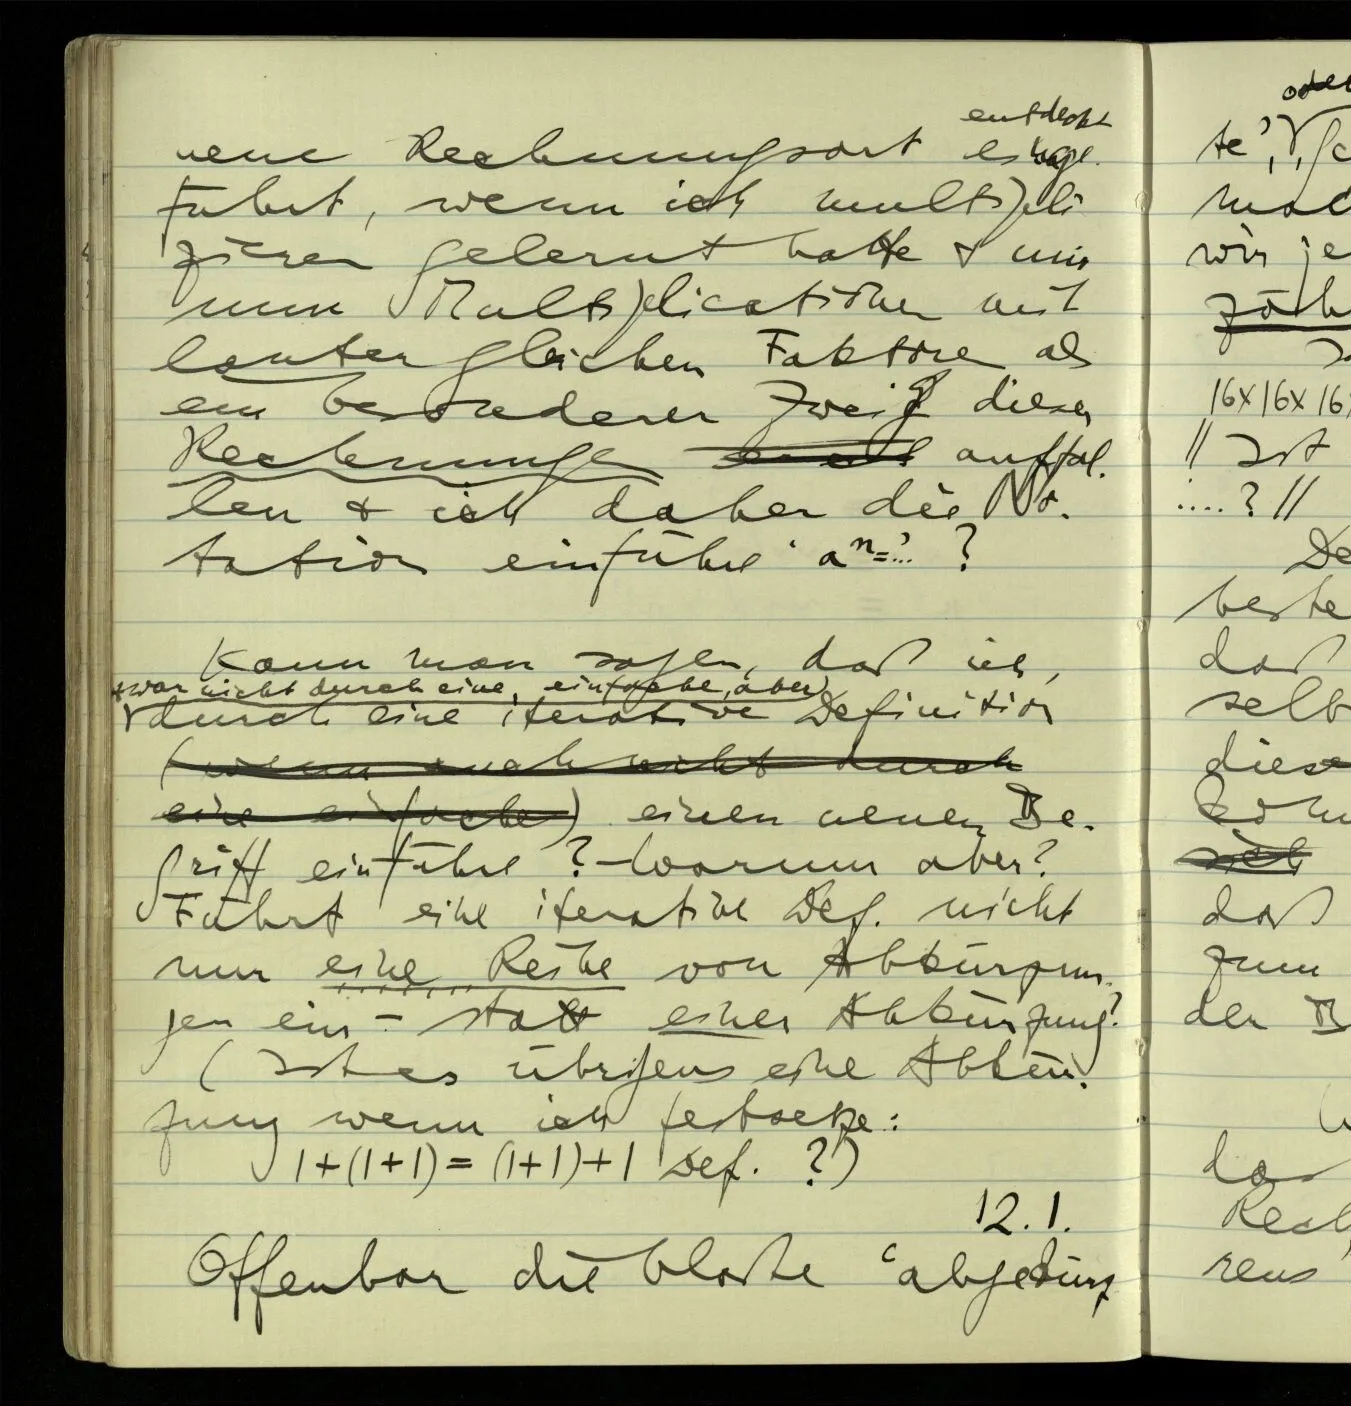 entdeckt
neue Rechnungsart
führt, wenn ich multipli
zieren gelernt hatte & mir
nun Multiplicationen mit
lauter gleichen Faktoren als
ein besonderer Zweig dieser
Rechnungen auffal-
len & ich daher die No-
tation einführe ‘aⁿ=...’ ?
Kann man sagen, daß ich,
zwar nicht durch eine einfache, aber
durch eine iterative Definition
(wenn auch nicht durch
eine einfache) einen neuen Be-
griff einführe? – Warum aber?
Führt eine iterative Def. nicht
nur eine Reihe von Abkürzun-
gen ein – statt einer Abkürzung?
(Ist es übrigens eine Abkür-
zung wenn ich festsetze:
1+(1+1) = (1+1)+1 Def. ?)
12.1.
Offenbar die bloße ‘abgekürz
oder
te’,
wir je
zäh
16x16x16x
// Ist
....? //
De
beste
daß
selb
diese
sich
daß
zum
der B
da
Rech
rens